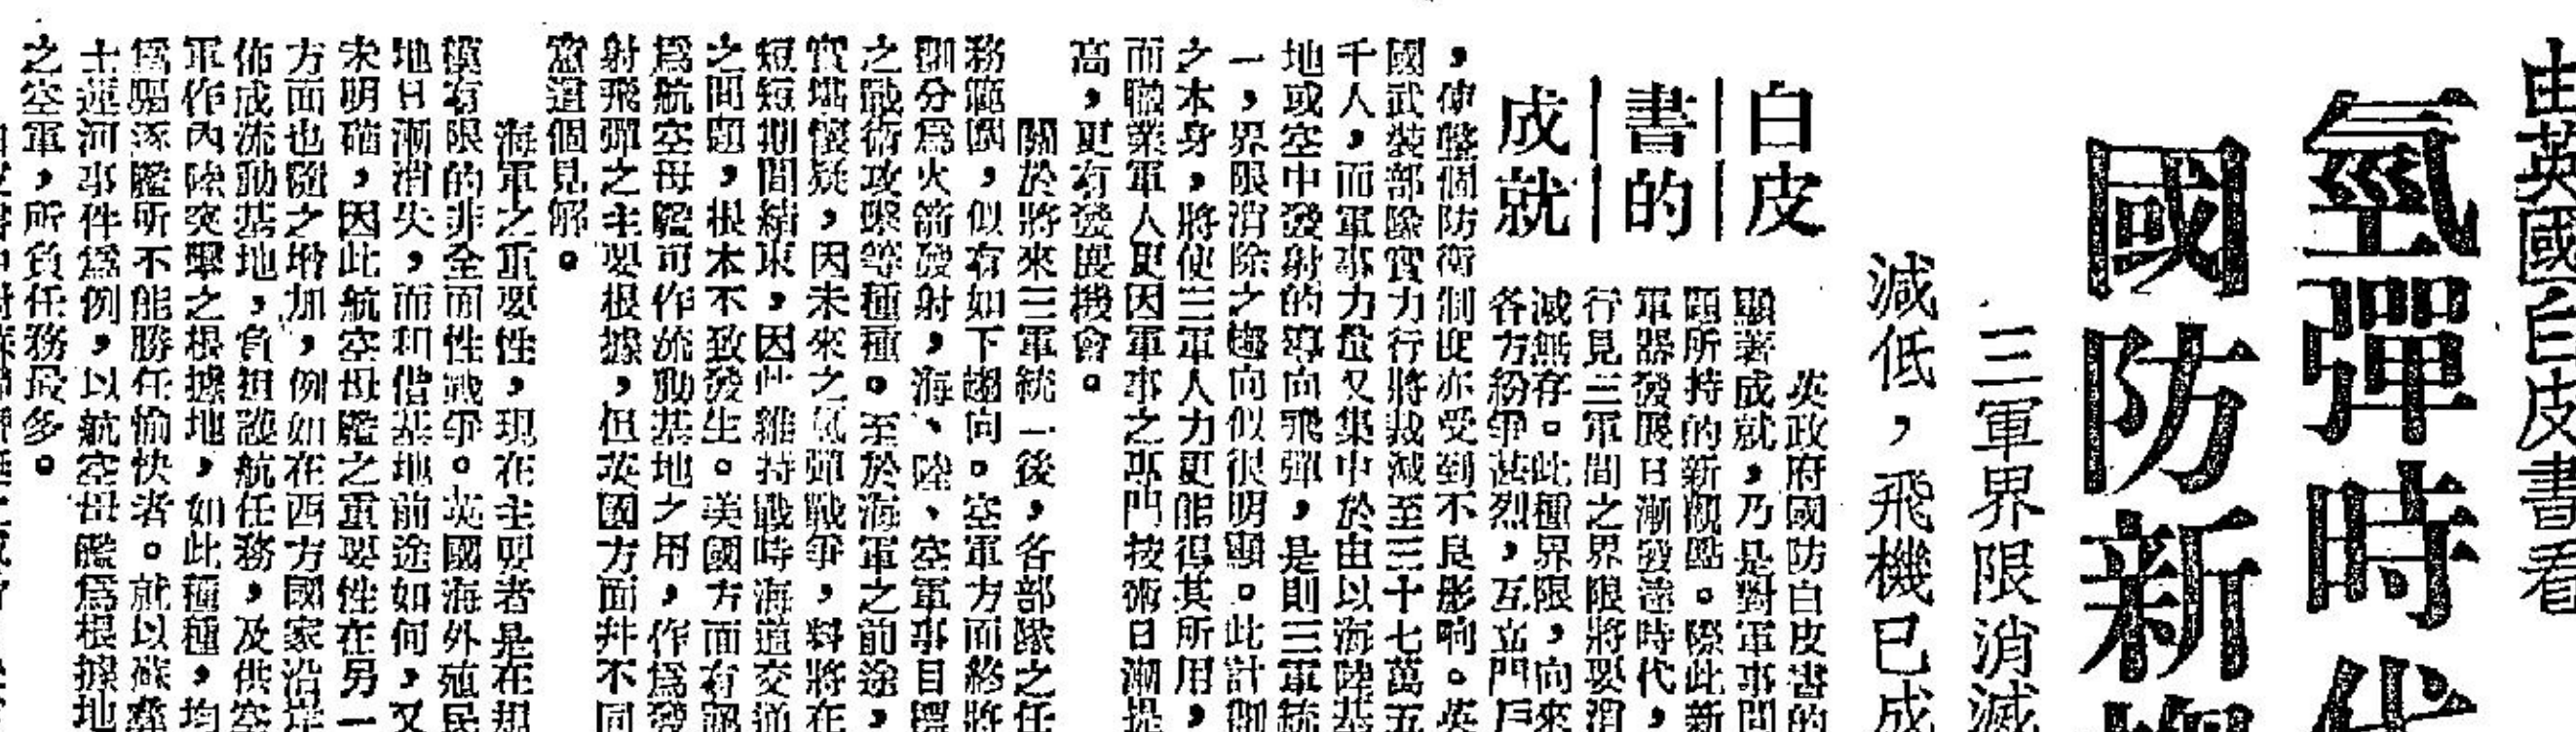 由英國白皮書看
氫彈時代
國防新
三軍界限消滅
減低，飛機已成
白皮
書的
成就
英政府國防白皮書的
顯著成就，乃是對軍事問
題所持的新觀點。際此新
軍器發展日漸發達時代，
行見三軍間之界限將要消
滅無存。此種界限，向來
各方紛爭甚烈，互立門戶
，使整個防衛制度亦受到不良影响。英
國武裝部隊實力行將裁減至三十七萬五
千人，而軍事力量又集中於由以海陸基
地或空中發射的導向飛彈，是則三軍統
一，界限消除之趨向似很明顯。此計劃
之本身，將使三軍人力更能得其所用，
而職業軍人更因軍事之專門技術日漸提
高，更有發展機會。
關於將來三軍統一後，各部隊之任
務範圍，似有如下趨向。空軍方面終將
劃分爲火箭發射，海、陸、空軍事目標
之戰術攻擊等種種。至於海軍之前途，
實堪懷疑，因未來之氫彈戰爭，料將在
短短期間結束，因此維持戰時海道交通
之問題，根本不致發生。美國方面有認
爲航空母艦可作流動基地之用，作爲發
射飛彈之主要根據，但英國方面幷不同
意這個見解。
海軍之重要性，現在主要者是在規
模有限的非全面性戰爭。英國海外殖民
地日漸消失，而和偕基地前途如何，又
未明確，因此航空母艦之重要性在另一
方面也隨之增加，例如在西方國家沿岸
佈成流動基地，負担護航任務，及供空
軍作內陸突擊之根據地，如此種種，均
爲驅逐艦所不能勝任愉快者。就以蘇彝
士運河事件爲例，以航空母艦爲根據地
之空軍，所負任務最多。